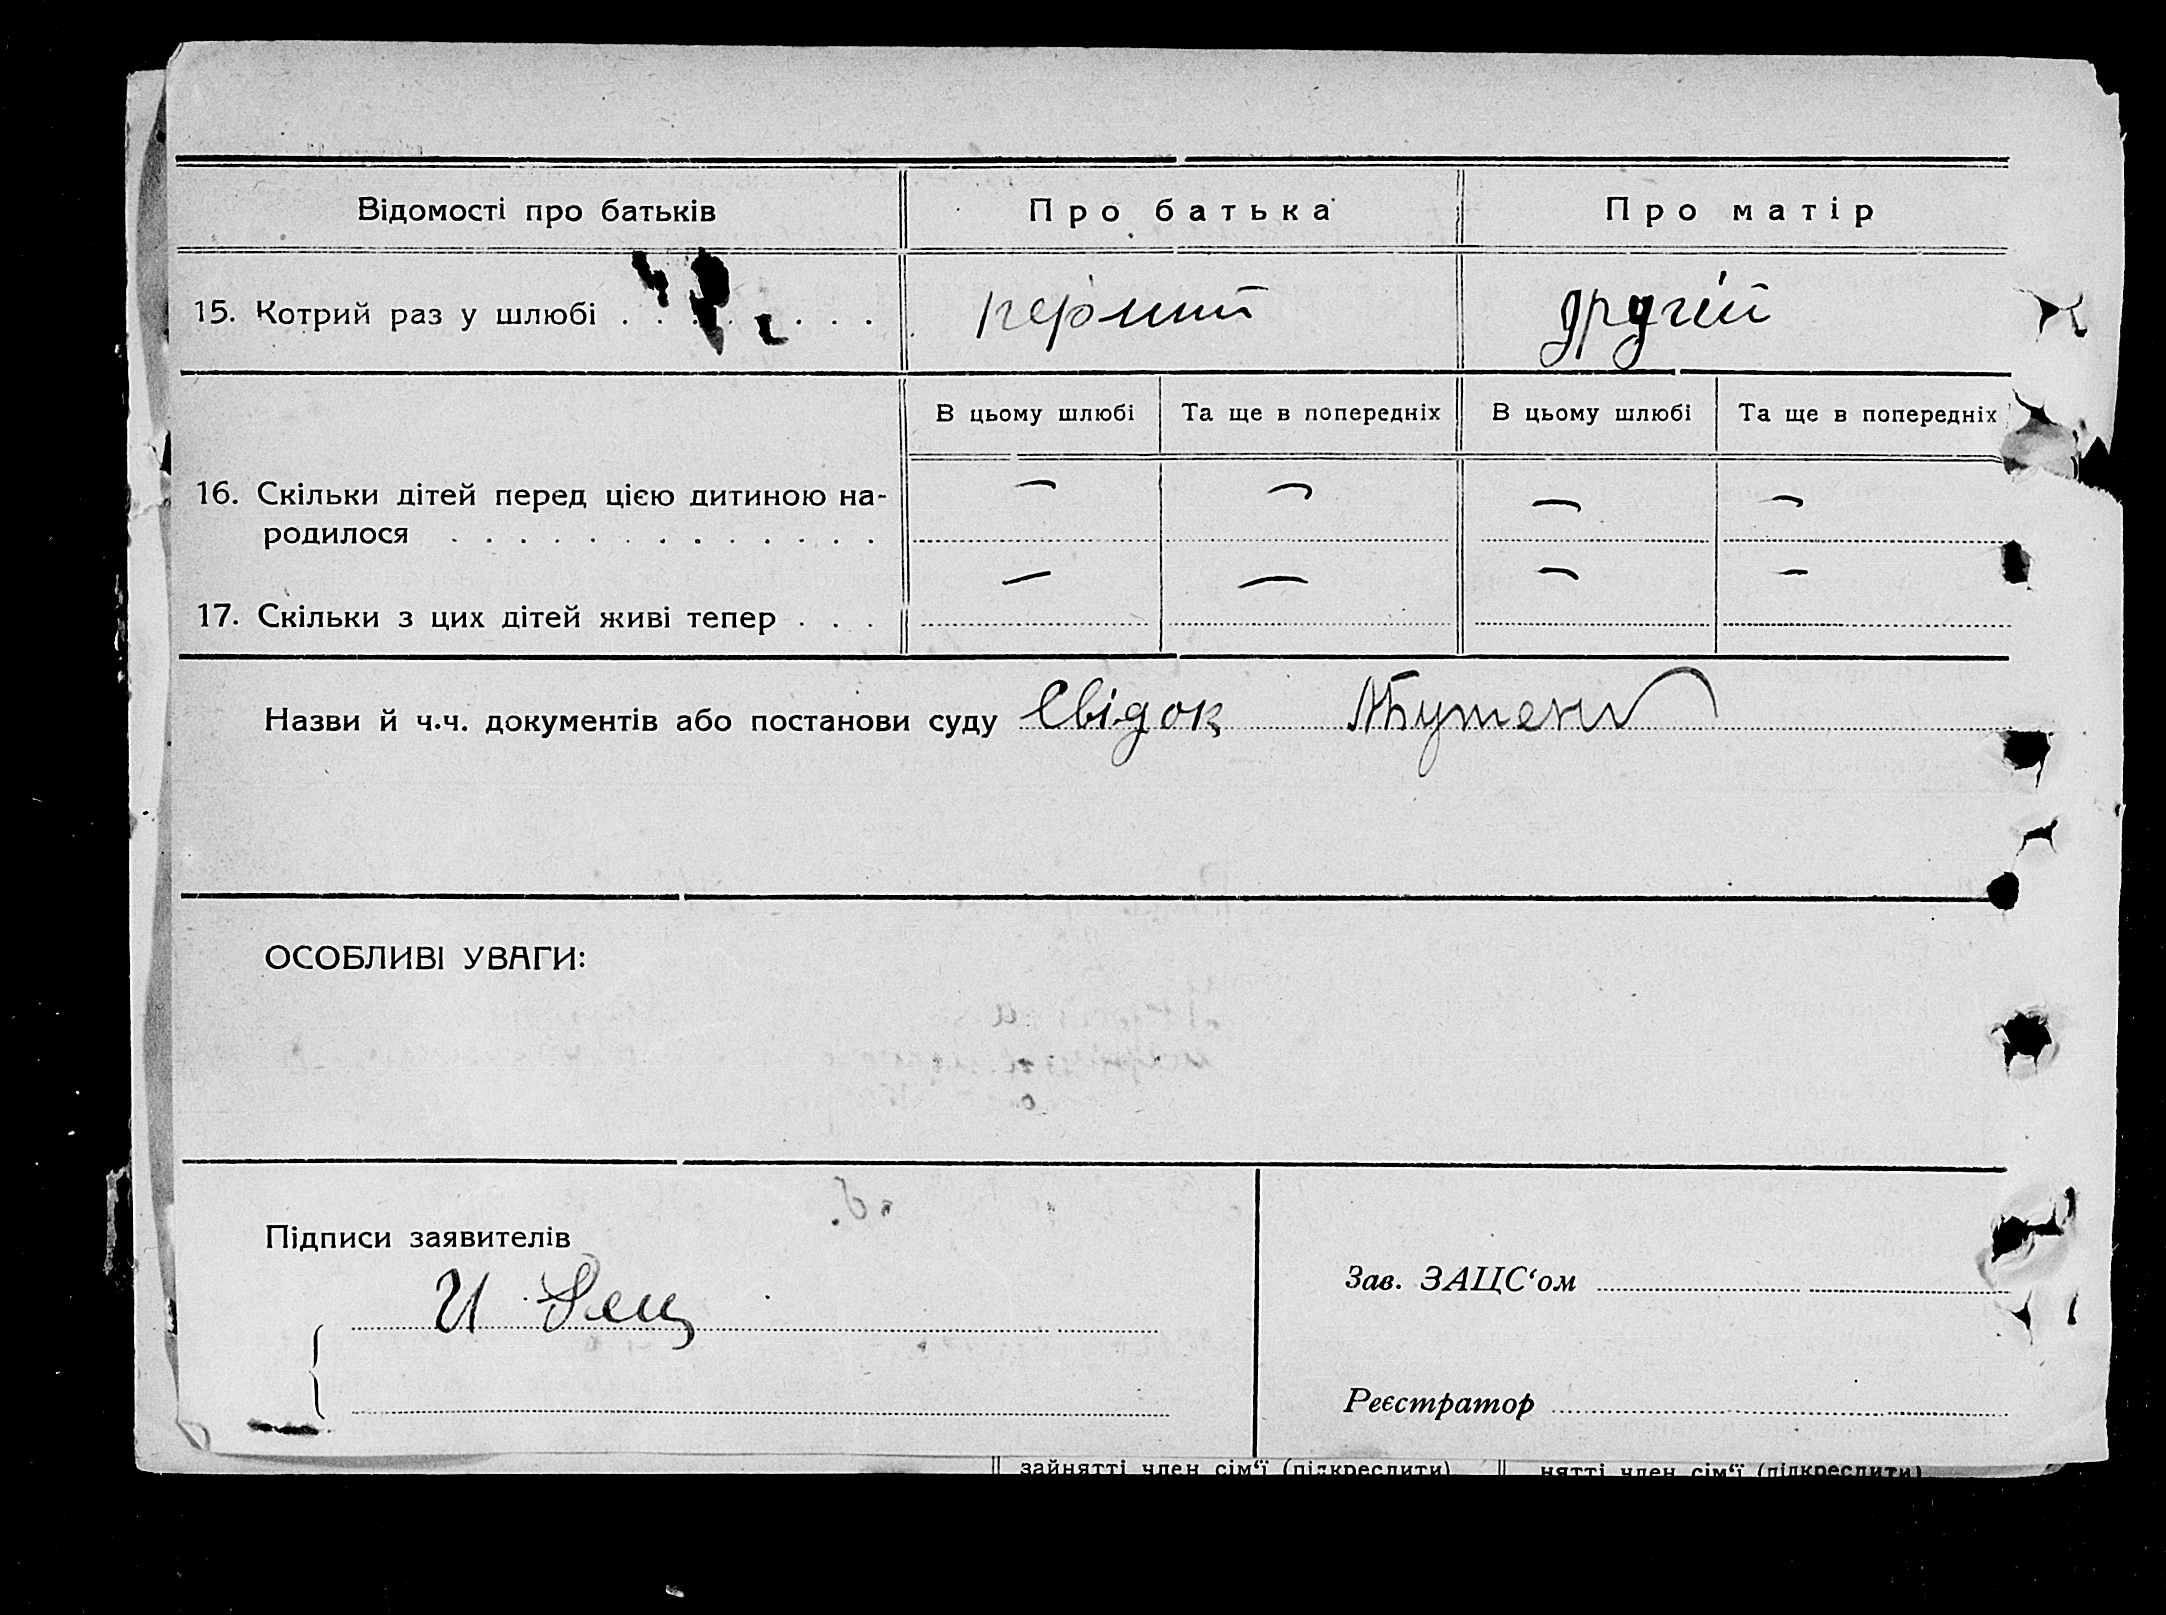 Відомості про батьків Про батька Про матір
15. Котрий раз у шлюбі . . . . . . . . перший другій
В цьому шлюбі Та ще в попередніх В цьому шлюбі Та ще в попередніх
16. Скільки дітей перед цією дитиною на-
— — — —
родилося . . . . . . . . . . . . .
— — — —
17. Скільки з цих дітей живі тепер . . .
Назви й ч.ч. документів або постанови суду Свідок
ОСОБЛИВІ УВАГИ:
Підписи заявителів
Зав. ЗАЦС‘ом
И
Реєстратор
зайнятті член сім‘ї (підкреслити) нятті член сім‘ї (підкреслити)